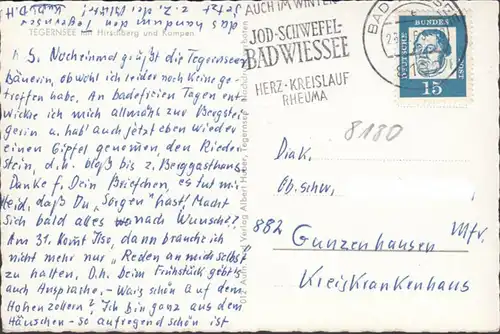 das Handtuch von
Kubuch D.H
jetzt z. Z. der
TEGERNSEE mit Hirschberg und Kampen
L. S. Nocheinmal grüßt die Tegernseer
Bäuerin, obwohl ich leider noch keine ge-
troffen habe. An badefreien Tagen ent-
wickle ich mich allmählich zur Bergstei-
gerin u. hab' auch jetzt eben wieder
einen Gipfel genommen, den Rieder-
stein, d.h. bloß bis z. Berggasthaus.
Danke f. Dein Briefchen, es tut mir
leid, daß Du „Sorgen" hast! Macht
sich bald alles nach Wunsch?
Am 31. kommt Ilse, dann brauche ich
nicht mehr nur „Reden an mich selbst"
zu halten. D.h. beim Frühstück gebt's
auch Ansprache. - Wars schön auf dem
Hohenzollern? Ich bin ganz aus dem
Häuschen - so aufregend schön ist
Verlag Albert Huber, Tegernsee
AUCH IM WINTER
JOD-SCHWEFEL-
BAD WIESSEE
HERZ-KREISLAUF
RHEUMA
BAD WIESSEE
DEUTSCHE BUNDESPOST
15
8180
Diak.
Ob.schw.
882 Gunzenhausen Mfr.
Kreiskrankenhaus